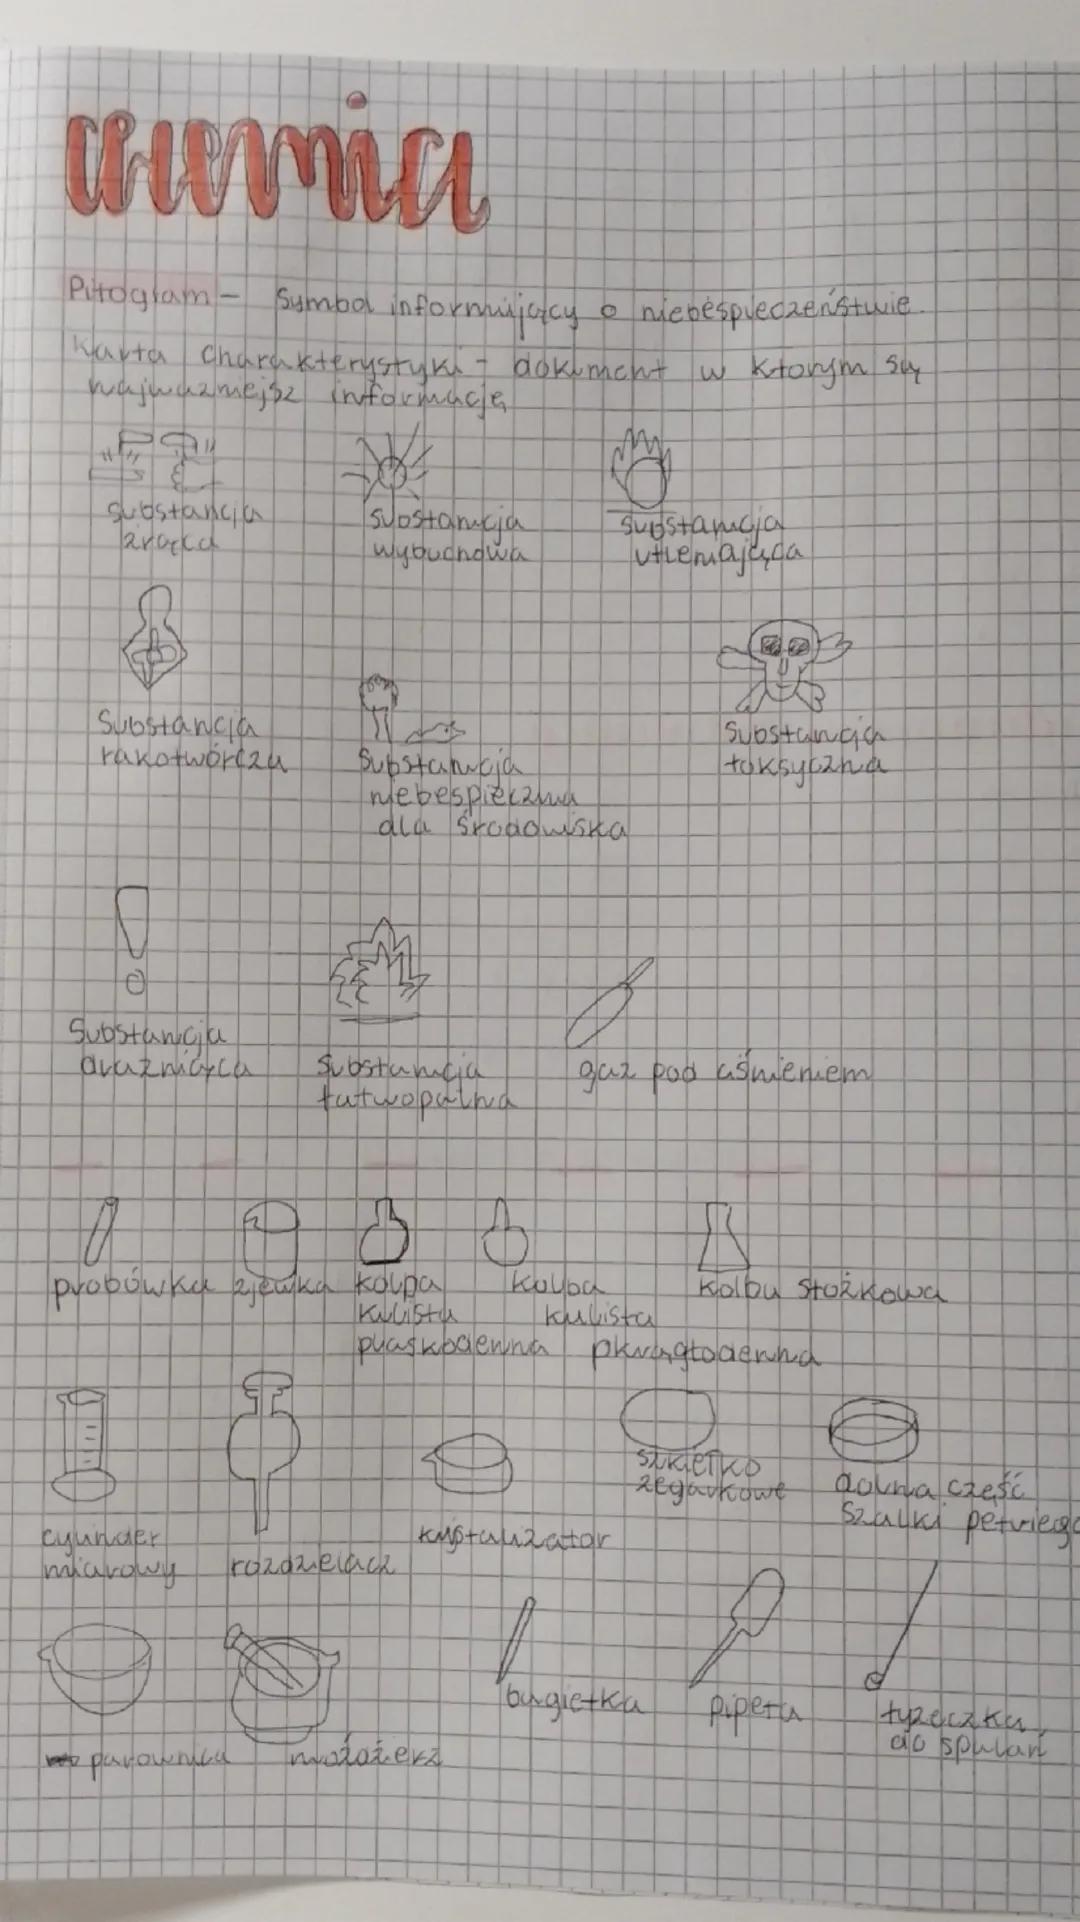 chemia
Piktogram - Symbol informujący o niebespieczeństwie.
Karta charakterystyki - dokument w ktorym są
najwazniejsz informacje
substancja
żrąca
substancja
wybuchowa
substancja
utleniająca
Substancja
rakotwórcza
Substancja
niebespieczna
dla środowiska
Substancja
toksyczna
Substancja
drażniąca
Substancja
łatwopalna
gaz pod ciśnieniem
probówka zlewka kolba kolba kolba stożkowa
kulista kulista
płaskodenna okrągłodenna
szkiełko
zegarkowe
dolna część
szalki petriego
cylinder
miarowy
rozdzielacz
krystalizator
bagietka
pipeta
łyżeczka
do spalań
parownica
moździerz